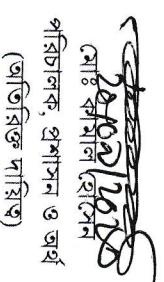 ২০/০৫/২১
মোঃ কামাল হোসেন
পরিচালক, প্রশাসন ও অর্থ
(অতিরিক্ত দায়িত্ব)